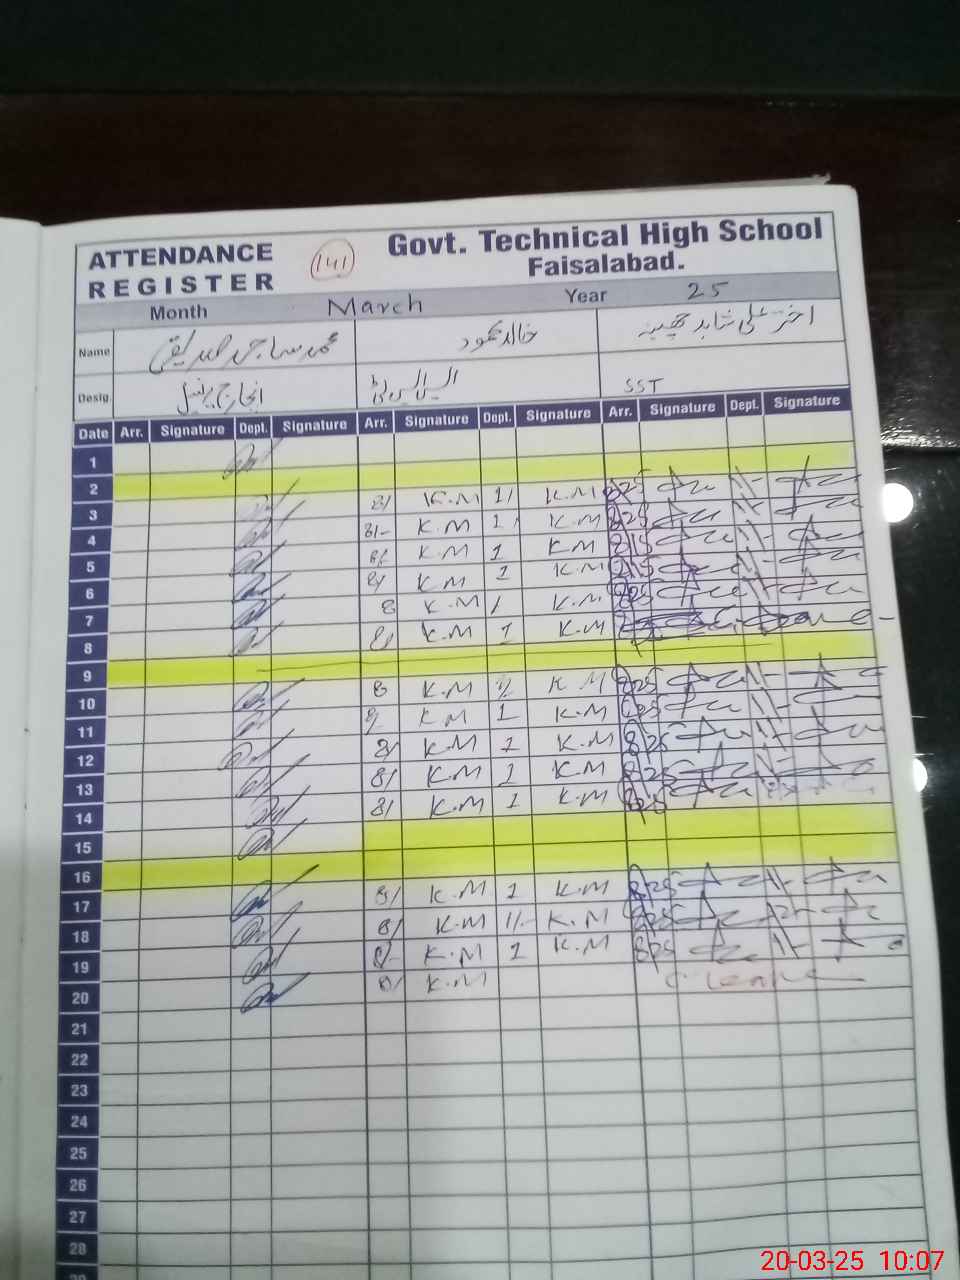 ATTENDANCE REGISTER
141
Govt. Technical High School
Faisalabad.
Month March Year 25
Name محمد ساجد صدیقی خالد محمود اختر علی شاہد چھینہ
Desig. انچارج پرنسپل ایس ایس ٹی SST
Date Arr. Signature Dept. Signature Arr. Signature Dept. Signature Arr. Signature Dept. Signature
1
2
3 8/ K.M 1/ K.M 825
4 8/- K.M 1 K.M 825
5 8/ K.M 1 K.M 815
6 8/ K.M 1 K.M 815
7 8 K.M 1 K.M 825
8 8/ K.M 1 K.M
9
10 8 K.M K.M 825
11 8/ K.M 1 K.M 825
12 8/ K.M 1 K.M 825
13 8/ K.M 1 K.M 825
14 8/ K.M 1 K.M 825
15
16
17 8/ K.M 1 K.M 825
18 8/ K.M 1/- K.M 825
19 8/- K.M 1 K.M 825
20 8/ K.M C. Leave
21
22
23
24
25
26
27
28
20-03-25 10:07